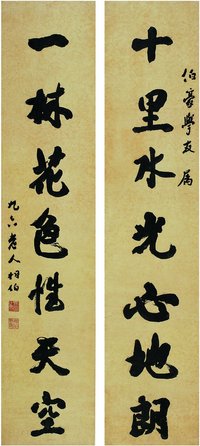 伯豪學友属
十里水光心地朗
一林花色性天空
九六老人相伯